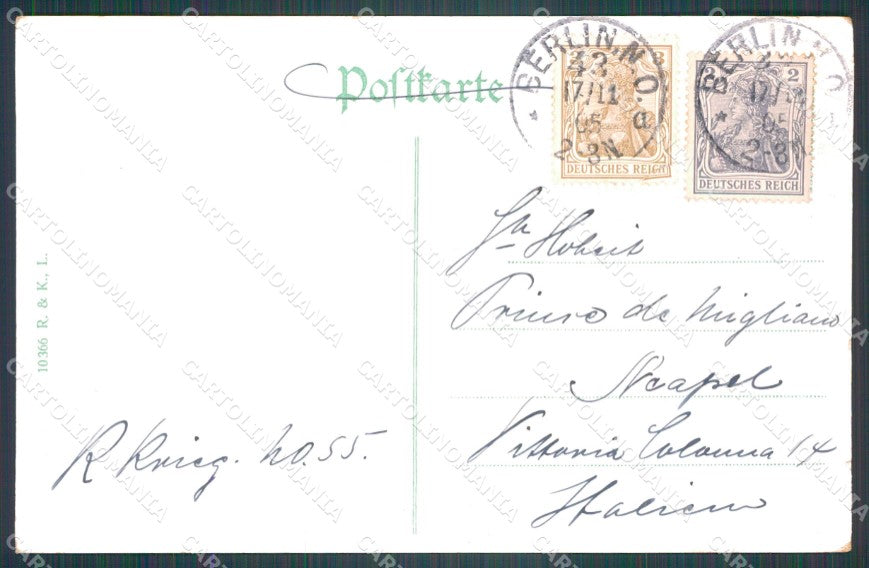 Postkarte
BERLIN.N.O.
43
17/11
05
2-3N
a
3
DEUTSCHES REICH
BERLIN.N.O.
17/11
05
2-3N
2
DEUTSCHES REICH
10366 R. & K., L.
Sr. Hoheit
Prinse de Migliano
Neapel
Vittoria Colonna 14
Italien
R Krieg. NO. 55.
CARTOLINOMANIA